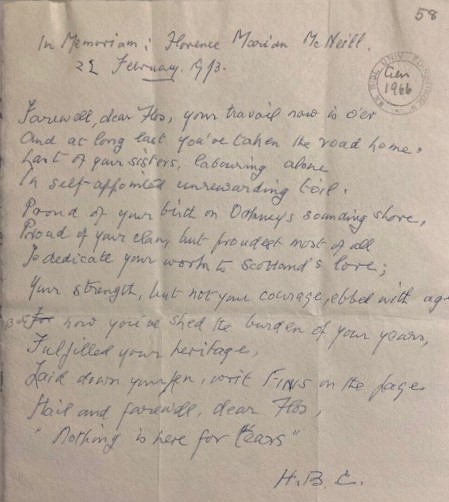 58
In Memoriam: Florence Marian McNeill.
22 February 1973.
Gen
1966
Farewell, dear Flos, your travail now is o'er
And at long last you've taken the road home.
Last of your sisters, labouring alone
In self-appointed unrewarding toil.
Proud of your birth on Orkney's sounding shore,
Proud of your clan, but proudest most of all
To dedicate your worth to Scotland's love;
Your strength, but not your courage, ebbed with age
now you've shed the burden of your years,
Fulfilled your heritage,
Laid down your pen, writ FINIS on the page
Hail and farewell, dear Flos,
"Nothing is here for tears"
H.B.C.